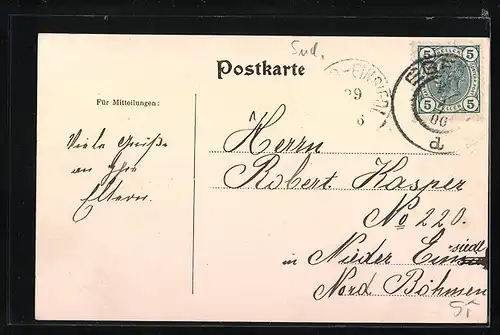 Sud.
Postkarte
Für Mitteilungen:
Viele Grüße
an Ihre
Eltern.
Herrn
Robert Kasper
No 220.
in Nieder Einsiedl
Nord Böhmen
5 HELLER 5
5 HELLER 5
EGER
d
29
6
06